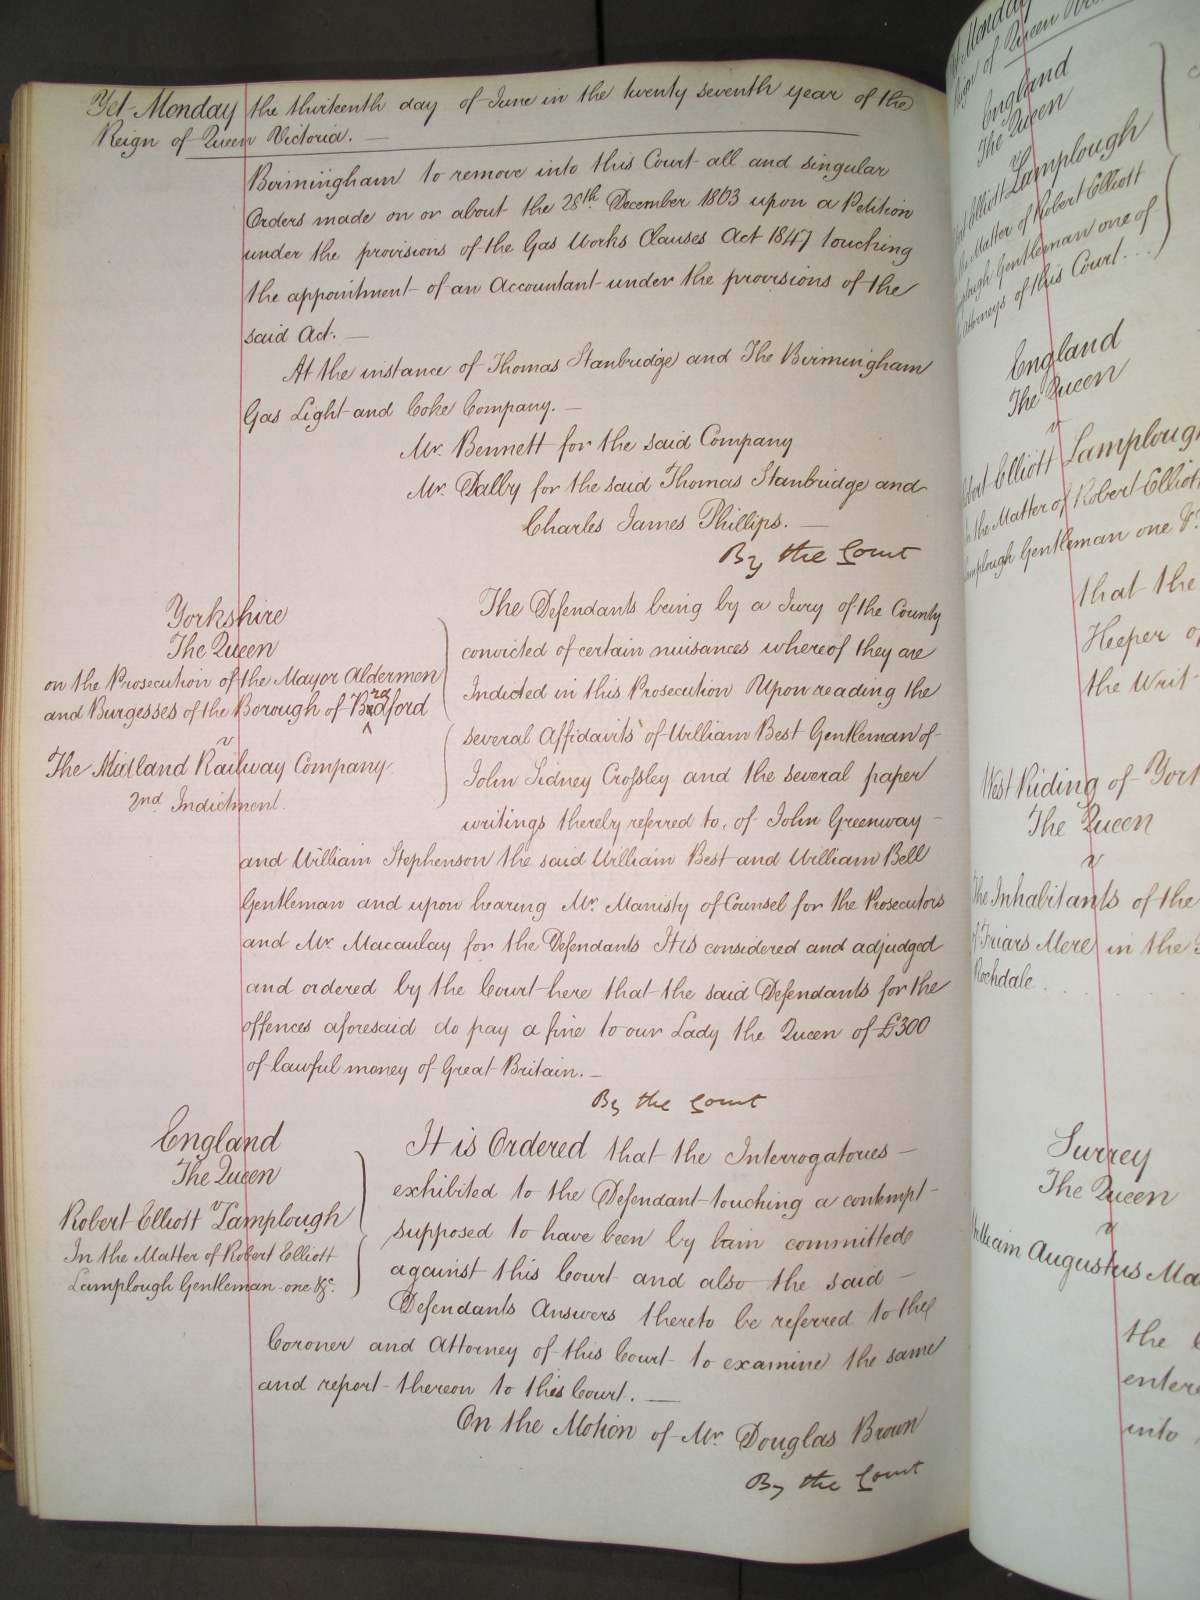 Yet Monday the thirteenth day of June in the twenty seventh year of the
Reign of Queen Victoria. —
Birmingham to remove into this Court all and singular
Orders made on or about the 28th December 1863 upon a Petition
under the provisions of the Gas Works Clauses Act 1847 touching
the appointment of an Accountant under the provisions of the
said Act. —
At the instance of Thomas Stanbridge and The Birmingham
Gas Light and Coke Company. —
Mr. Bennett for the said Company
Mr. Dalby for the said Thomas Stanbridge and
Charles James Phillips. —
By the Court
Yorkshire
The Queen
on the Prosecution of the Mayor Aldermen
and Burgesses of the Borough of Bradford
v
The Midland Railway Company
2nd Indictment.
The Defendants being by a Jury of the County
convicted of certain nuisances whereof they are
Indicted in this Prosecution Upon reading the
several Affidavits of William Best Gentleman of
John Sidney Crossley and the several paper
writings thereby referred to, of John Greenway
and William Stephenson the said William Best and William Bell
Gentleman and upon hearing Mr. Manisty of Counsel for the Prosecutors
and Mr. Macaulay for the Defendants It is considered and adjudged
and ordered by the Court here that the said Defendants for the
offences aforesaid do pay a fine to our Lady the Queen of £300
of lawful money of Great Britain. —
By the Court
England
The Queen
v
Robert Elliott Lamplough
In the Matter of Robert Elliott
Lamplough Gentleman one &c.
It is Ordered that the Interrogatories —
exhibited to the Defendant touching a contempt
supposed to have been by him committed
against this Court and also the said —
Defendants Answers thereto be referred to the
Coroner and Attorney of this Court to examine the same
and report thereon to this Court. —
On the Motion of Mr. Douglas Brown
By the Court
Monday
of Queen
England
The Queen
v
Elliott Lamplough
the Matter of Robert Elliott
Gentleman one of
Attorneys of this Court . . .
England
The Queen
v
Elliott Lamplough
the Matter of Robert Elliott
Gentleman one &c.
that the
Keeper
the Writ
West Riding of
The Queen
v
The Inhabitants of the
of Friars Mere in the
Rochdale . . .
Surrey
The Queen
v
William Augustus
the
into